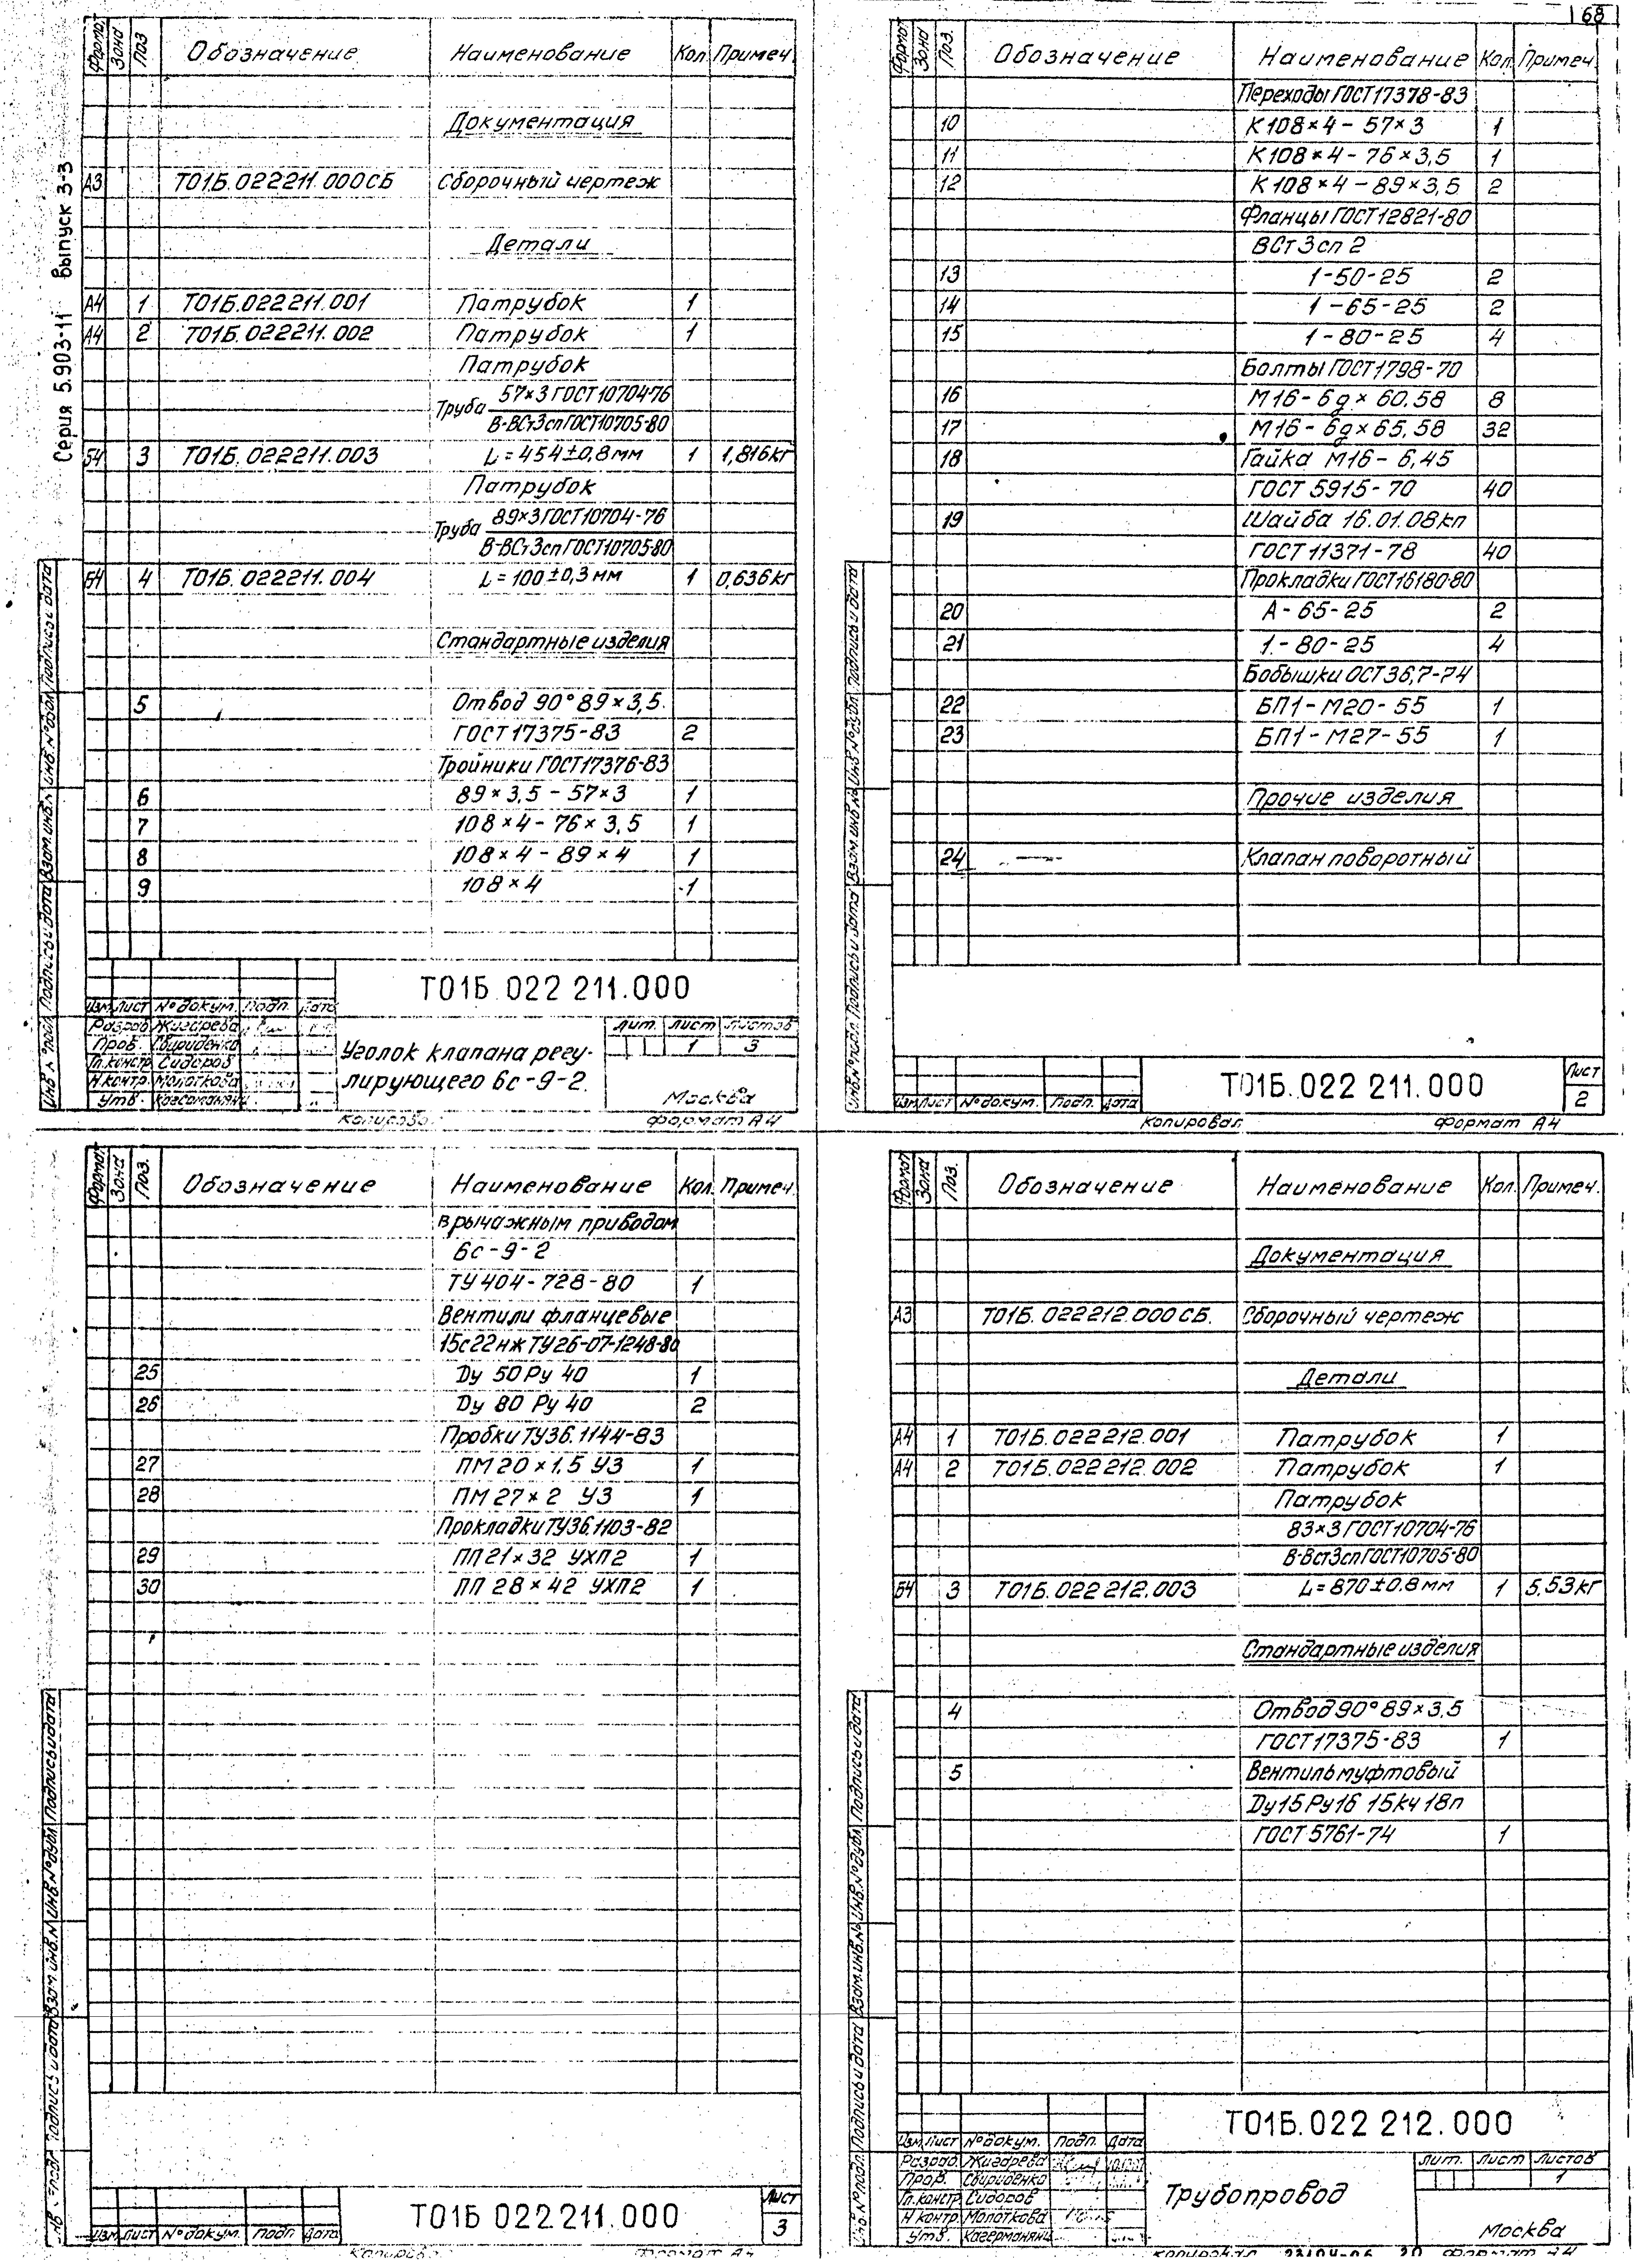 168
Серия 5.903-11 Выпуск 3-3
Формат Зона Поз. Обозначение Наименование Кол. Примеч.
Документация
А3 Т01Б.022211.000СБ Сборочный чертеж
Детали
А4 1 Т01Б.022211.001 Патрубок 1
А4 2 Т01Б.022211.002 Патрубок 1
Патрубок
Труба 57×3 ГОСТ10704-76
В-ВСт3сп ГОСТ10705-80
Б4 3 Т01Б.022211.003 L=454±0,8мм 1 1,816кг
Патрубок
Труба 89×3 ГОСТ10704-76
В-ВСт3сп ГОСТ10705-80
Б4 4 Т01Б.022211.004 L=100±0,3мм 1 0,636кг
Стандартные изделия
5 Отвод 90° 89×3,5
ГОСТ17375-83 2
Тройники ГОСТ17376-83
6 89×3,5-57×3 1
7 108×4-76×3,5 1
8 108×4-89×4 1
9 108×4 1
Т01Б.022 211.000
Изм. Лист № докум. Подп. Дата
Разраб. Жигарева
Пров. Свириденко
Гл.констр. Сидоров
Н.контр. Молоткова
Утв.
Уголок клапана регу-
лирующего 6с-9-2
Лит. Лист Листов
1 3
Москва
Инв.№ подл. Подпись и дата Взам.инв.№ Инв.№ дубл. Подпись и дата
Формат А4
Формат Зона Поз. Обозначение Наименование Кол. Примеч.
Переходы ГОСТ17378-83
10 К108×4-57×3 1
11 К108×4-76×3,5 1
12 К108×4-89×3,5 2
Фланцы ГОСТ12821-80
ВСт3сп2
13 1-50-25 2
14 1-65-25 2
15 1-80-25 4
Болты ГОСТ1798-70
16 М16-6g×60.58 8
17 М16-6g×65.58 32
18 Гайка М16-6,45
ГОСТ 5915-70 40
19 Шайба 16.01.08кп
ГОСТ11371-78 40
Прокладки ГОСТ16180-80
20 А-65-25 2
21 1-80-25 4
Бобышки ОСТ36,7-74
22 БП1-М20-55 1
23 БП1-М27-55 1
Прочие изделия
24 Клапан поворотный
Инв.№ подл. Подпись и дата Взам.инв.№ Инв.№ дубл. Подпись и дата
Изм. Лист № докум. Подп. Дата
Т01Б.022 211.000
Лист
2
Копировал Формат А4
Формат Зона Поз. Обозначение Наименование Кол. Примеч.
в рычажным приводом
6с-9-2
ТУ404-728-80 1
Вентили фланцевые
15с22нж ТУ26-07-1248-80
25 Ду 50 Ру 40 1
26 Ду 80 Ру 40 2
Пробки ТУ36.1144-83
27 ПМ20×1,5 У3 1
28 ПМ27×2 У3 1
Прокладки ТУ36.1103-82
29 ПП21×32 УХЛ2 1
30 ПП 28×42 УХЛ2 1
Подпись и дата Взам.инв.№ Инв.№ дубл. Подпись и дата
Изм. Лист № докум. Подп. Дата
Т01Б 022 211.000
Лист
3
Формат Зона Поз. Обозначение Наименование Кол. Примеч.
Документация
А3 Т01Б.022212.000СБ. Сборочный чертеж
Детали
А4 1 Т01Б.022212.001 Патрубок 1
А4 2 Т01Б.022212.002 Патрубок 1
Патрубок
83×3 ГОСТ10704-76
В-Вст3сп ГОСТ10705-80
Б4 3 Т01Б.022212.003 L=870±0.8мм 1 5.53кг
Стандартные изделия
4 Отвод 90° 89×3,5
ГОСТ17375-83 1
5 Вентиль муфтовый
Ду15 Ру16 15кч18п
ГОСТ 5761-74 1
Инв.№ подл. Подпись и дата Взам.инв.№ Инв.№ дубл. Подпись и дата
Т01Б.022 212.000
Изм. Лист № докум. Подп. Дата
Разраб. Жигарева
Пров. Свириденко
Гл.констр. Сидоров
Н.контр. Молоткова
Утв.
Трубопровод
Лит. Лист Листов
1
Москва